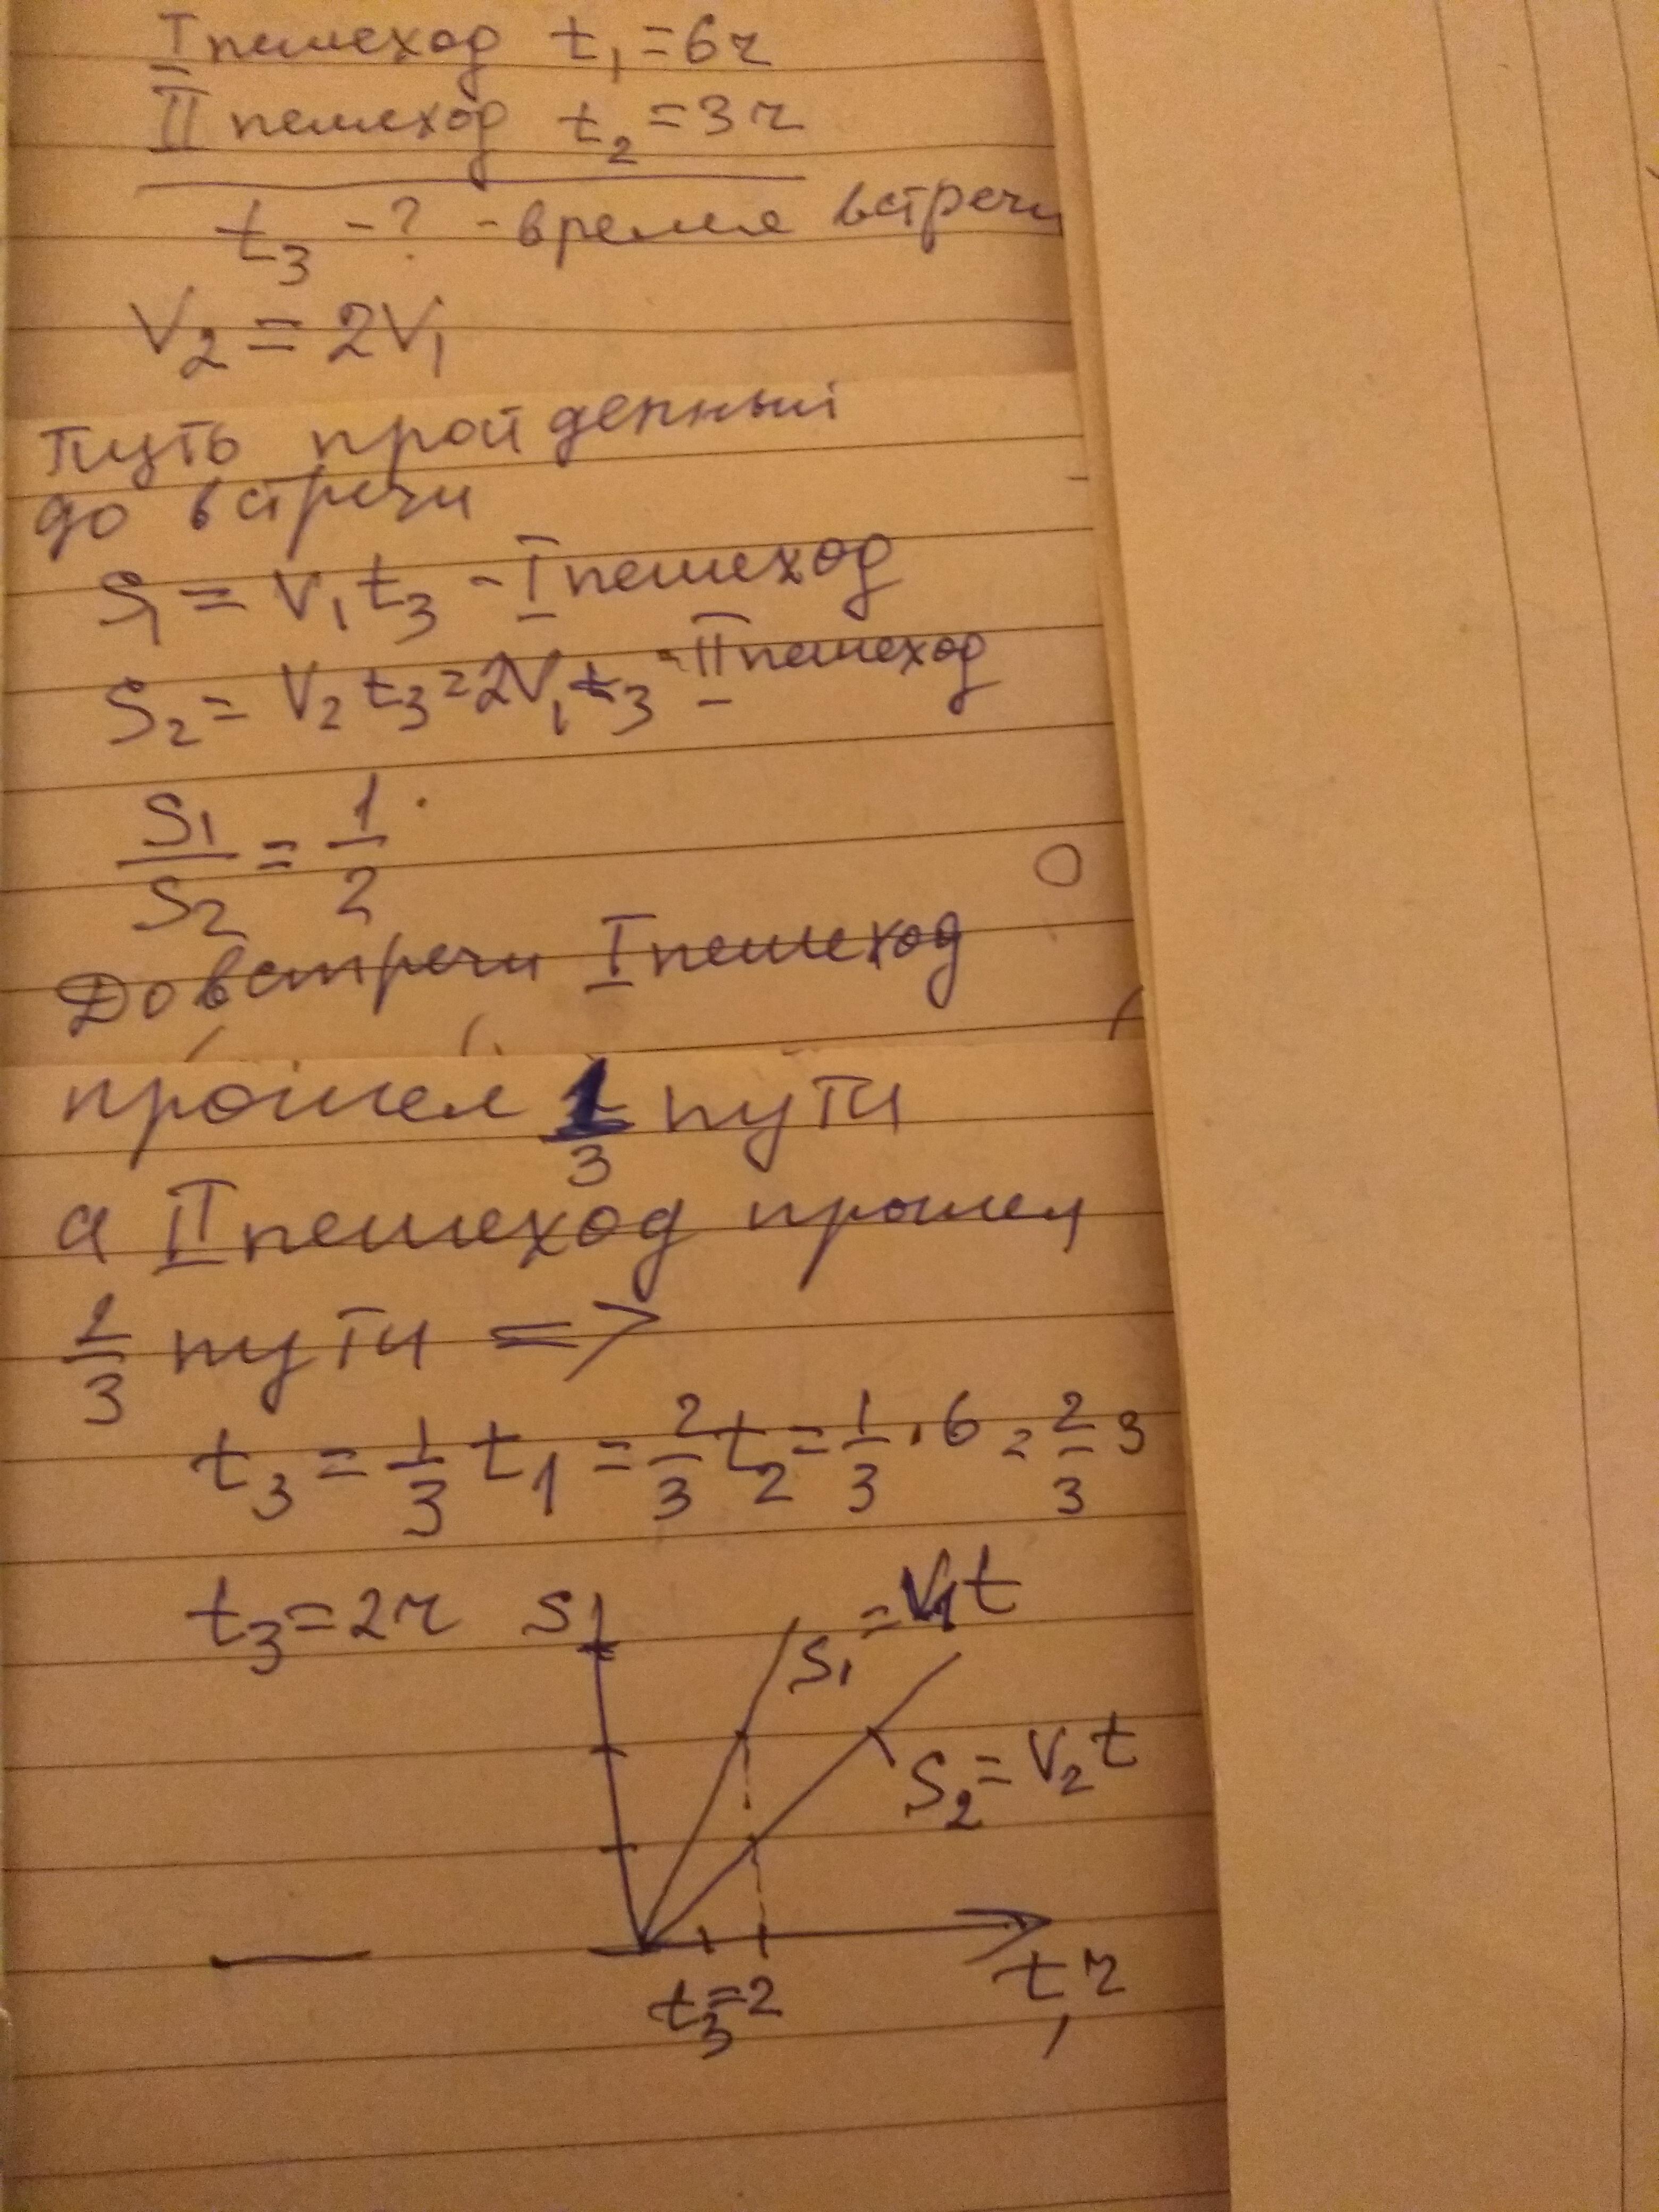 I пешеход t₁ = 6ч
II пешеход t₂ = 3ч
t₃ - ? - время встречи
V₂ = 2V₁
Путь пройденный
до встречи
S₁ = V₁ t₃ - I пешеход
S₂ = V₂ t₃ = 2V₁ t₃ - II пешеход
S₁/S₂ = 1/2
До встречи I пешеход
прошел 1/3 пути
а II пешеход прошел
2/3 пути =>
t₃ = 1/3 t₁ = 2/3 t₂ = 1/3 · 6 = 2/3 3
t₃ = 2ч
S
S₁ = V₁t
S₂ = V₂ t
t₃ = 2
t, ч